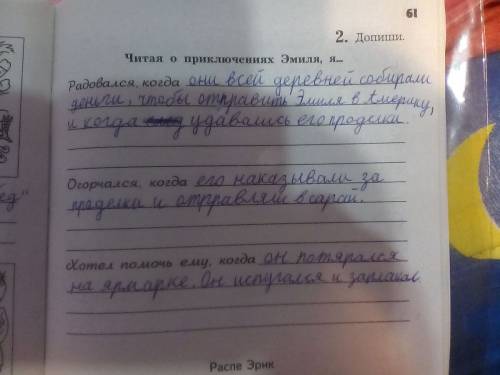 61
2. Допиши.
Читая о приключениях Эмиля, я...
Радовался, когда они всей деревней собирали
деньги, чтобы отправить Эмиля в Америку,
и когда удавались его проделки.
Огорчался, когда его наказывали за
проделки и отправляли в сарай.
Хотел помочь ему, когда он потярался
на ярмарке. Он испугался и заплакал
ед"
Распе Эрик